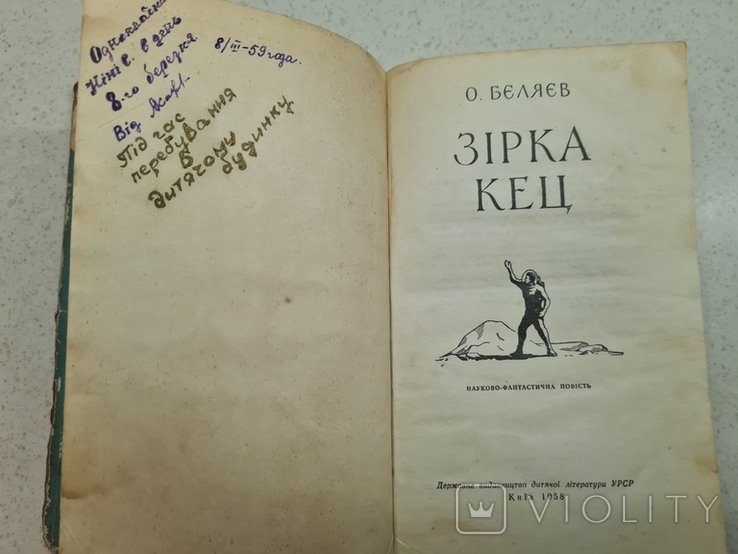 Однокласниці
Ніні Є. в день
8-го березня
Від
8/III-59 года.
Під час
перебування
в
дитячому
будинку
О. БЄЛЯЄВ
ЗІРКА
КЕЦ
НАУКОВО-ФАНТАСТИЧНА ПОВІСТЬ
Державне видавництво дитячої літератури УРСР
Київ 1958
VIOLITY